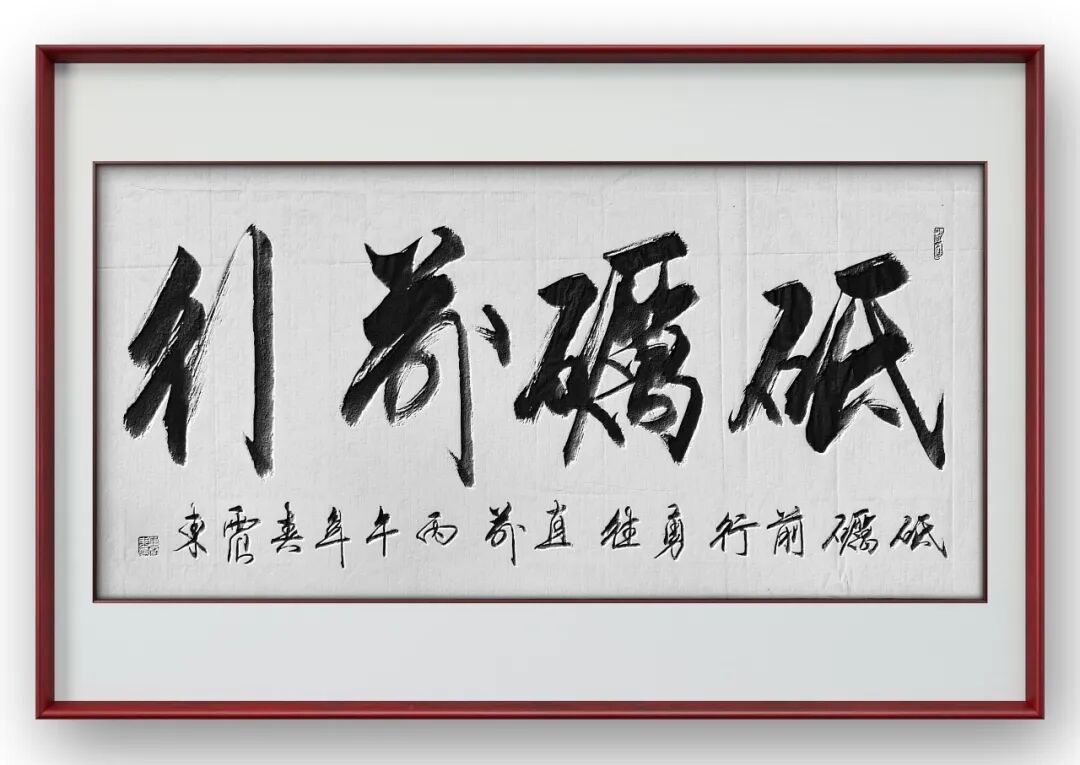 砥礪前行
砥礪前行勇往直前丙午年春震東